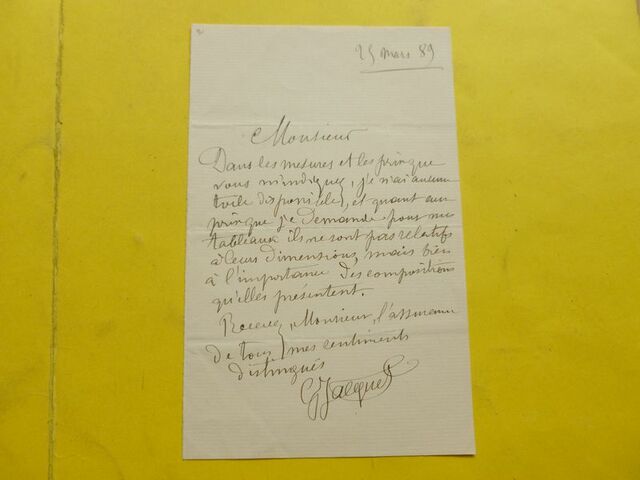 25 mars 89
Monsieur
Dans les mesures et les prix que
vous m'indiquez, je n'ai aucune
toile disponible, et quant aux
prix que je demande pour mes
tableaux ils ne sont pas relatifs
à leur dimensions, mais bien
à l'importance des compositions
qu'elles présentent.
Recevez, Monsieur, l'assurance
de tous mes sentiments
distingués
GJacquet